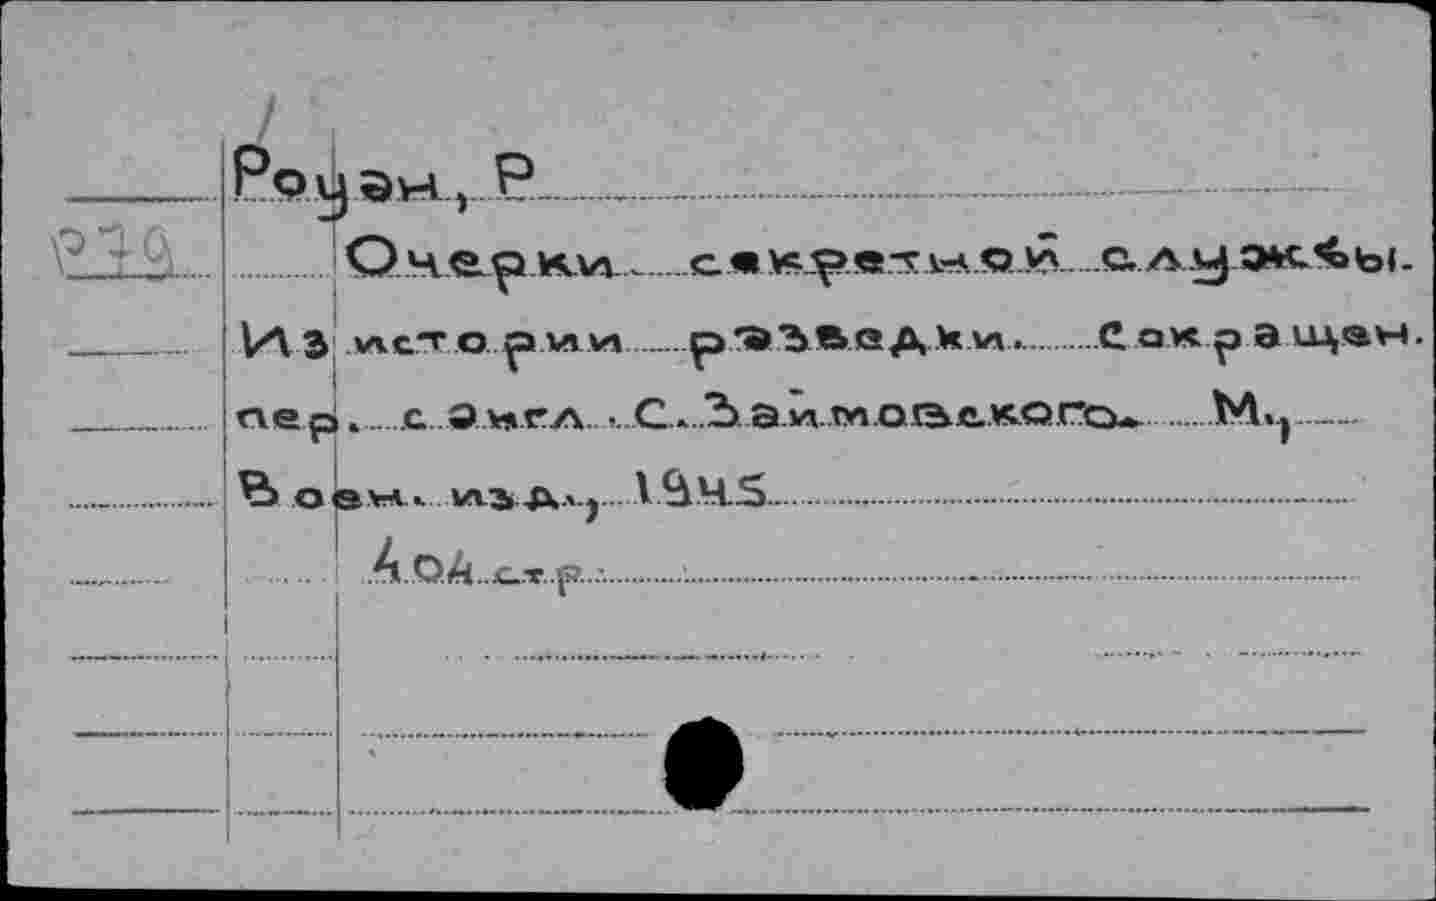 Роуэн, Р
Очерки секретной службы.
Из истории разведки. Сокращен.
пер. с англ. С. Займовского. М.,
Воен. изд., 1945
стр.